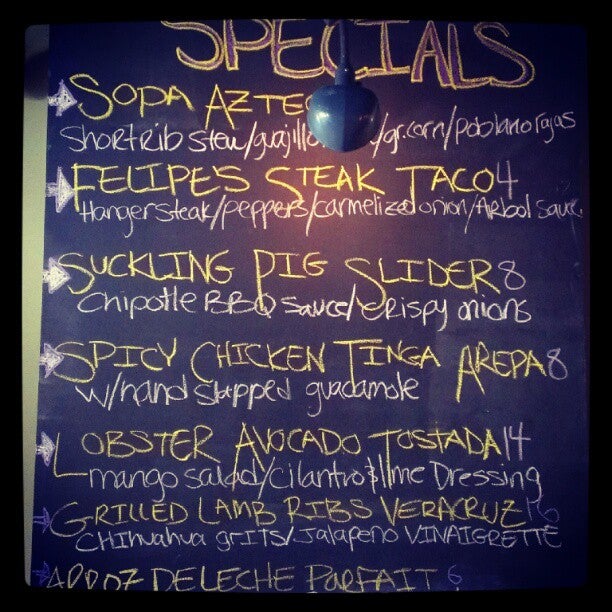 SPECIALS
SOPA AZTEC
Shortrib stew/guajillo /gr.corn/poblano rajas
FELIPE'S STEAK TACO 4
Hanger steak/peppers/carmelized onion/Arbol sauce
SUCKLING PIG SLIDER 8
Chipotle BBQ sauce/crispy onions
SPICY CHICKEN TINGA AREPA 8
w/hand slapped guacamole
LOBSTER AVOCADO TOSTADA 14
mango salad/cilantro & lime Dressing
GRILLED LAMB RIBS VERACRUZ 16
CHIHUAHUA grits/Jalapeno VINAIGRETTE
ARROZ DE LECHE PARFAIT 6